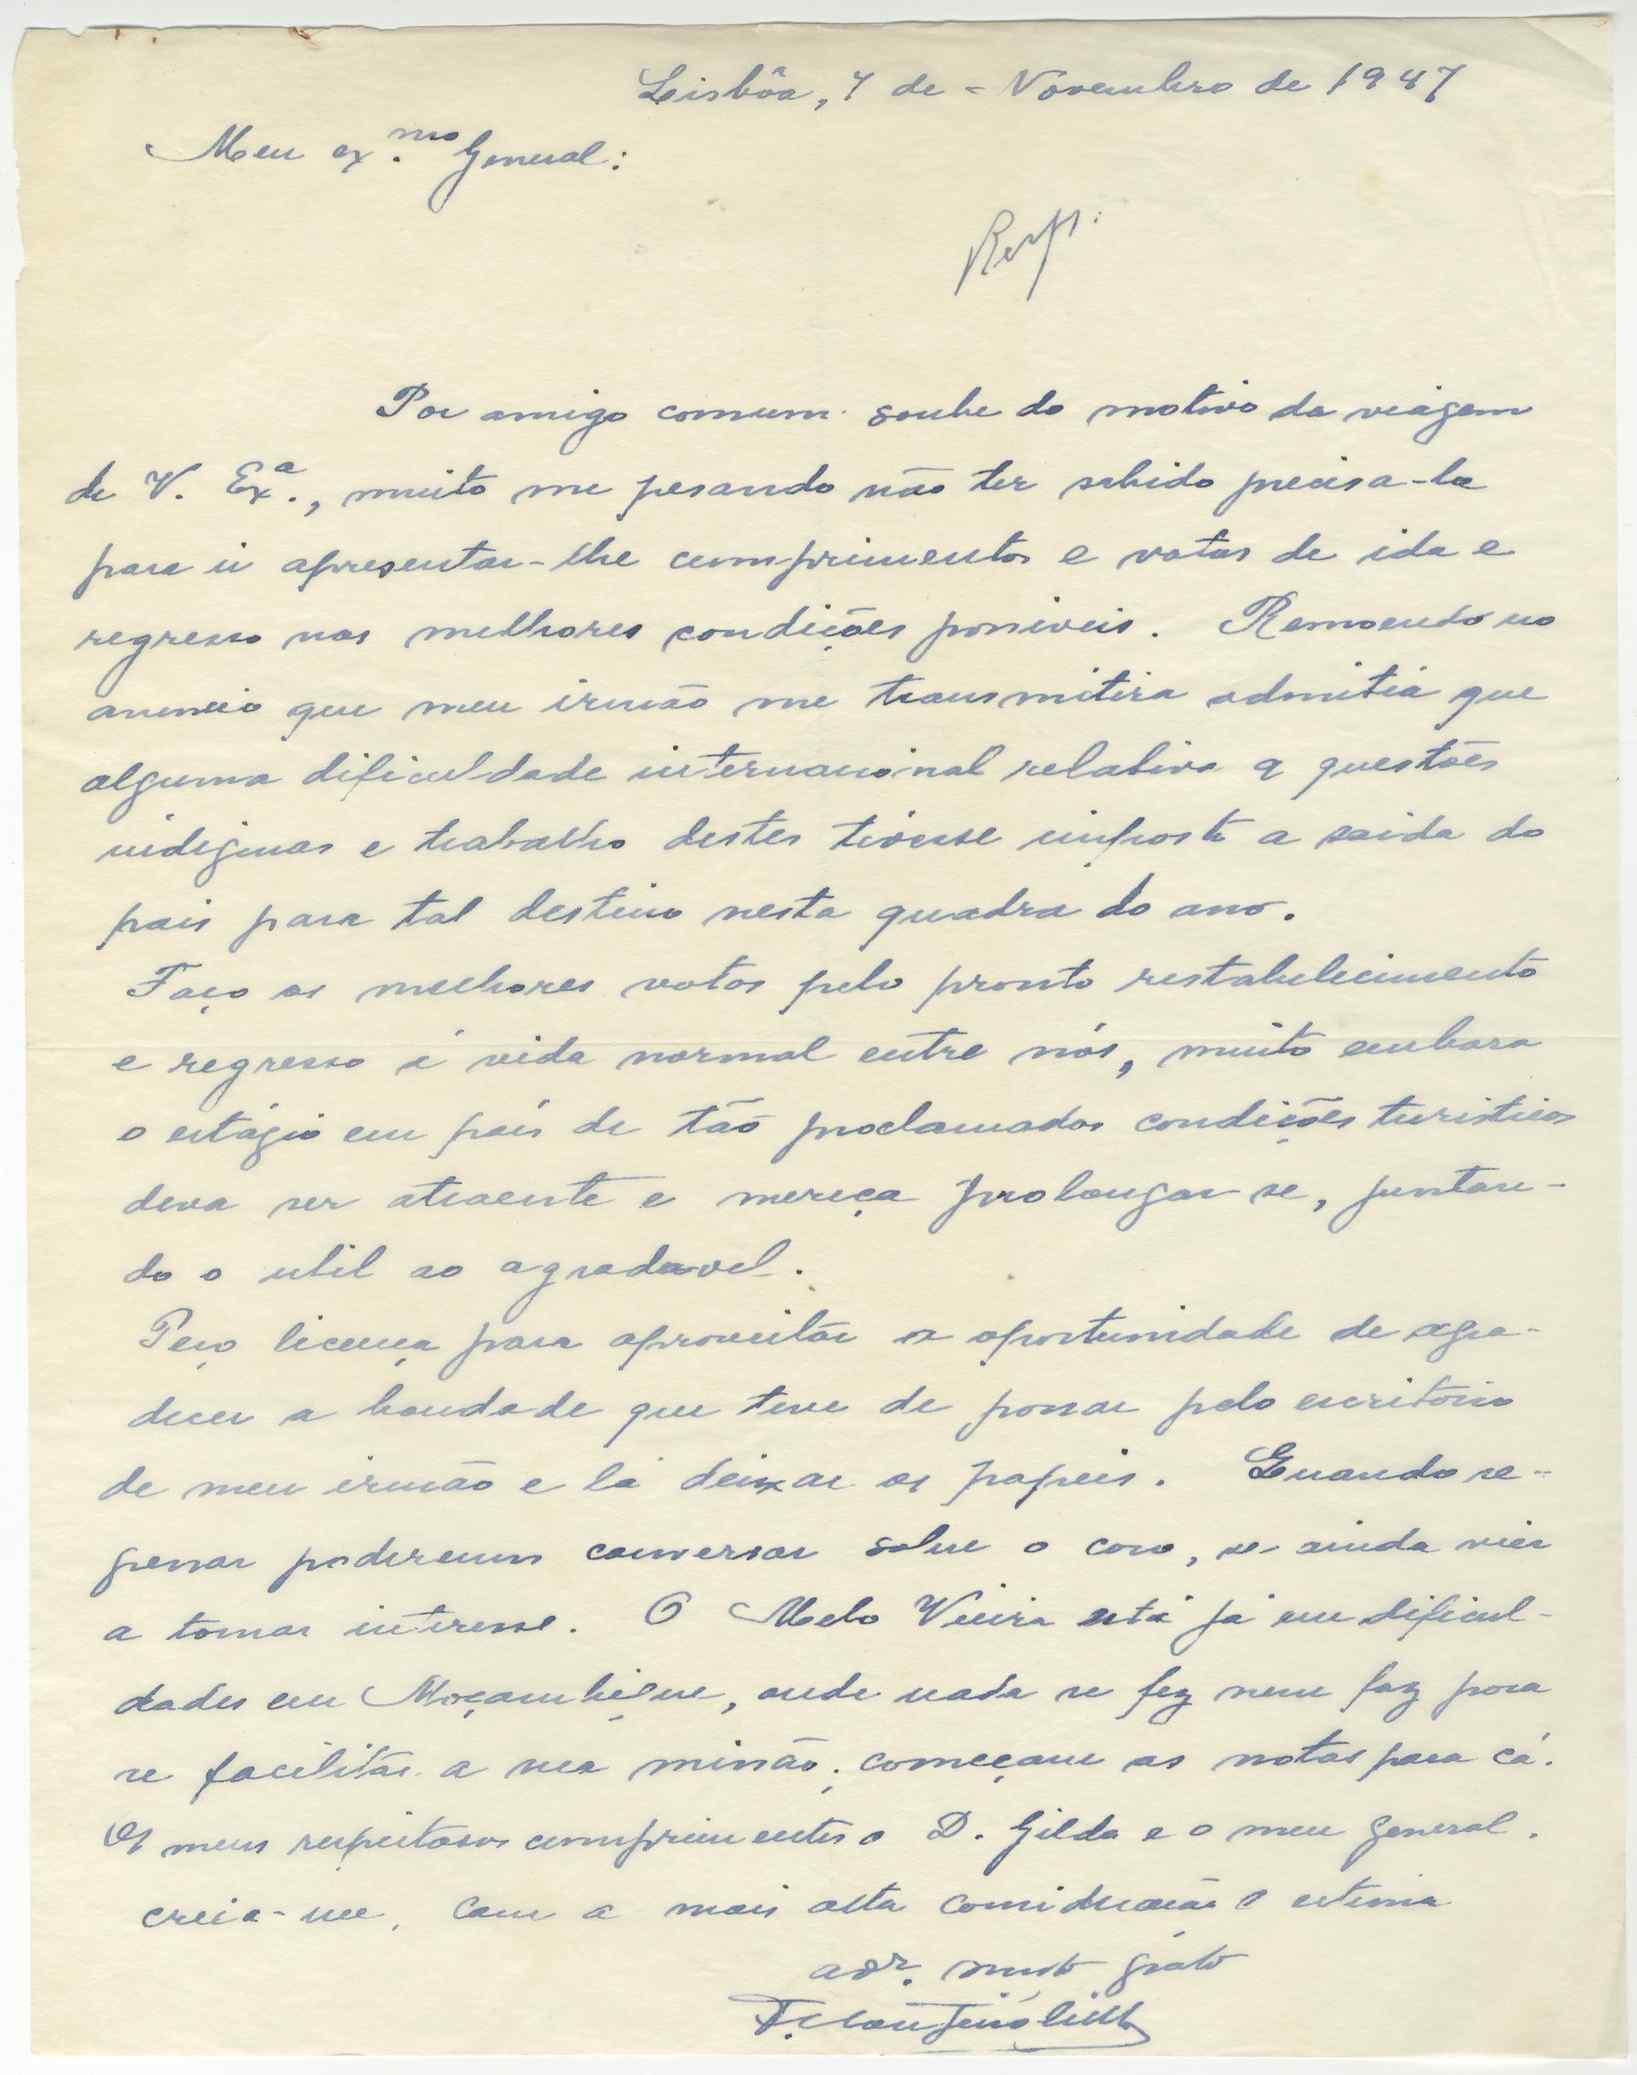 Lisbôa, 7 de - Novembro de 1947
Meu ex.mo General:
Resp.
Por amigo comum soube do motivo da viagem
de V. Ex.a, muito me pesando não ter sabido precisa-la
para ir apresentar-lhe cumprimentos e votos de ida e
regresso nas melhores condições possiveis. Remoendo no
anuncio que meu irmão me transmitira admitia que
alguma dificuldade internacional relativa a questões
indiginas e trabalho destes tivesse imposto a saida do
pais para tal destino nesta quadra do ano.
Faço os melhores votos pelo pronto restabelecimento
e regresso á vida normal entre nós, muito embora
o estágio em país de tão proclamadas condições turisticas
deva ser atraente e mereça prolongar-se, juntan-
do o util ao agradavel.
Peço licença para aproveitar a oportunidade de agra-
decer a bondade que teve de passar pelo escritório
de meu irmão e lá deixar os papeis. Quando re-
gressar poderemos conversar sobre o caso, se ainda vier
a tomar interesse. O Melo Vieira está já em dificul-
dades em Moçambique, onde nada se fez nem faz para
se facilitar a sua missão; começam as notas para cá.
Os meus respeitosos cumprimentos a D. Gilda e o meu General.
creia-me, com a mais alta consideração e estima
adr. muito grato